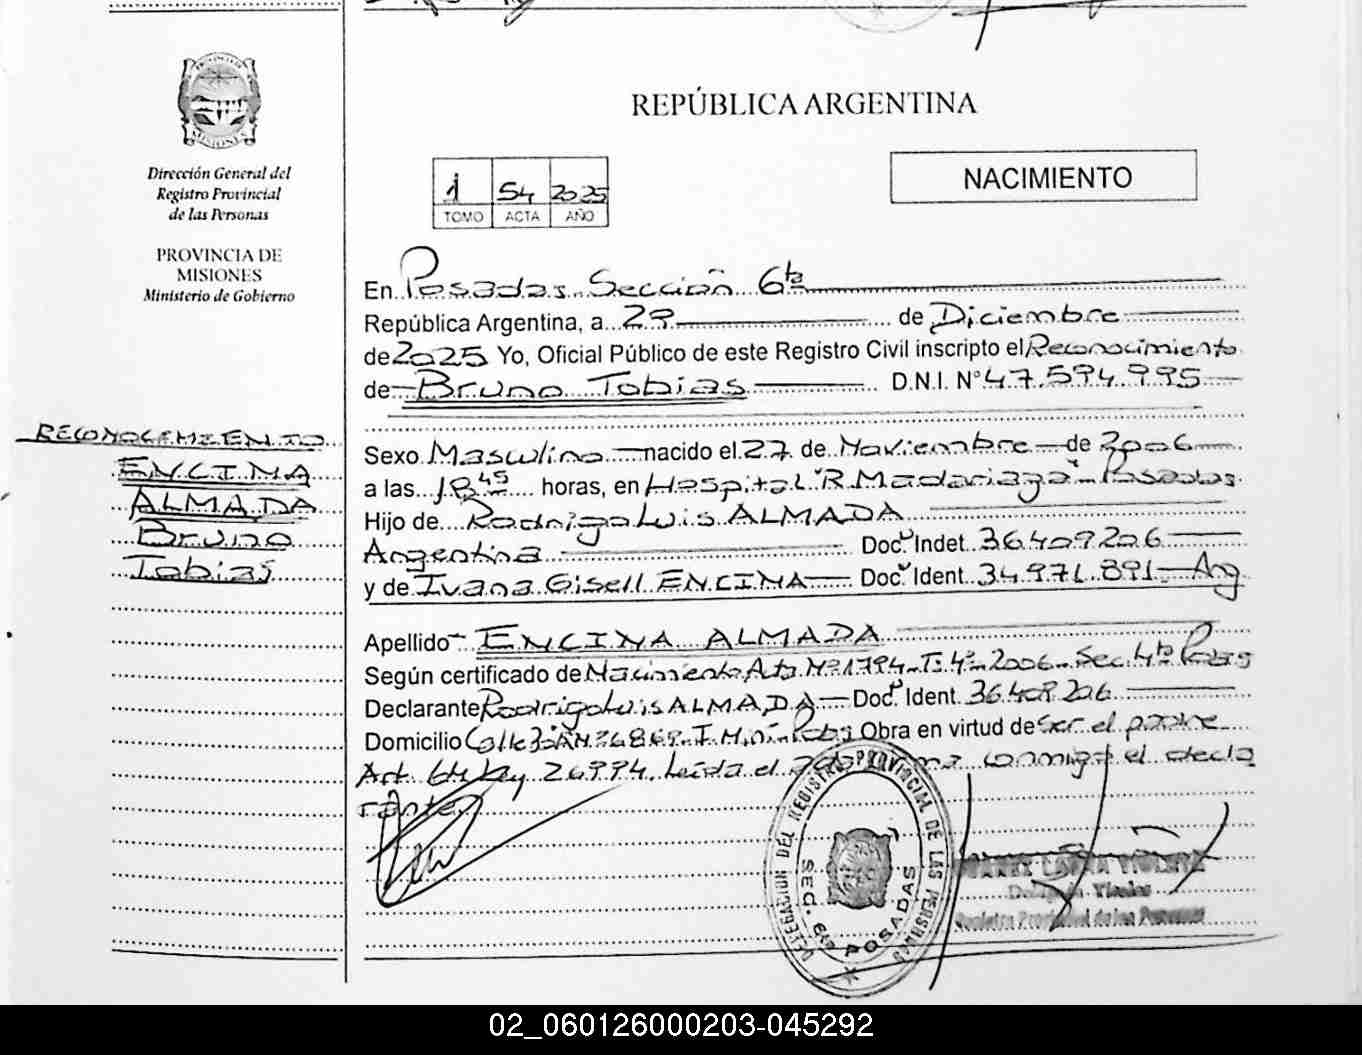 REPÚBLICA ARGENTINA
Dirección General del
Registro Provincial
de las Personas
PROVINCIA DE
MISIONES
Ministerio de Gobierno
NACIMIENTO
1 54 2025
TOMO ACTA AÑO
En Posadas Sección 6ta
República Argentina, a 29 de Diciembre
de 2025 Yo, Oficial Público de este Registro Civil inscripto el Reconocimiento
de Bruno Tobias D.N.I. N° 47.594.995
RECONOCEMIENTO
ENCINA
ALMADA
Bruno
Tobias
Sexo Masculino nacido el 27 de Noviembre de 2006
a las 18 45 horas, en Hospital "R. Madariaga" Posadas
Hijo de Rodrigo Luis ALMADA
Argentina Doc. Indet. 36409206
y de Ivana Gisell ENCINA Doc. Ident. 34.971.891 Arg
Apellido ENCINA ALMADA
Según certificado de Nacimiento Acta Nº 1794 T: 4º 2006 Sec. 4ta
Declarante Rodrigo Luis ALMADA Doc. Ident. 36.409.206
Domicilio Calle Obra en virtud de ser el padre
Art. Ley 26994. Leída el conmigo el decla
rante.
DELEGACION DEL REGISTRO PROVINCIAL DE LAS PERSONAS
SEC. 6ta POSADAS
Registro Provincial de las Personas
02_060126000203-045292